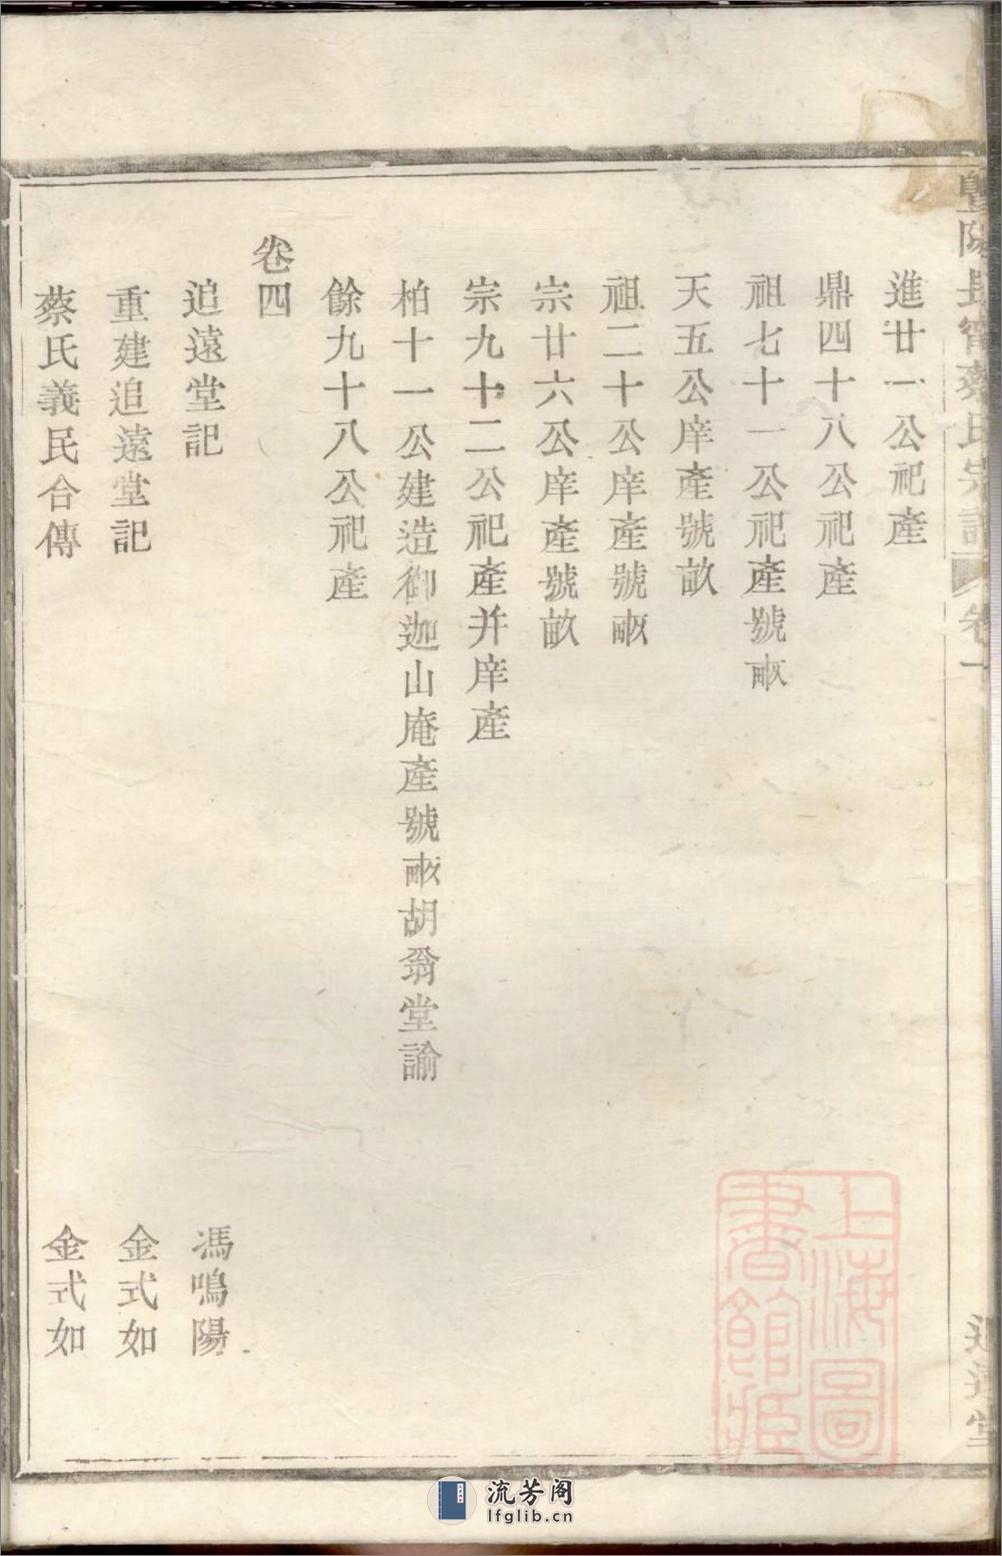 暨陽長甯蔡氏宗譜 卷一
追遠堂
進廿一公祀產
鼎四十八公祀產
祖七十一公祀產號畝
天五公庠產號畝
祖二十公庠產號畝
宗廿六公庠產號畝
宗九十二公祀產并庠產
柏十一公建造御迦山庵產號畝胡翁堂諭
餘九十八公祀產
卷四
追遠堂記 馮鳴陽
重建追遠堂記 金式如
蔡氏義民合傳 金式如
上海圖書館藏
流芳阁
lfglib.cn